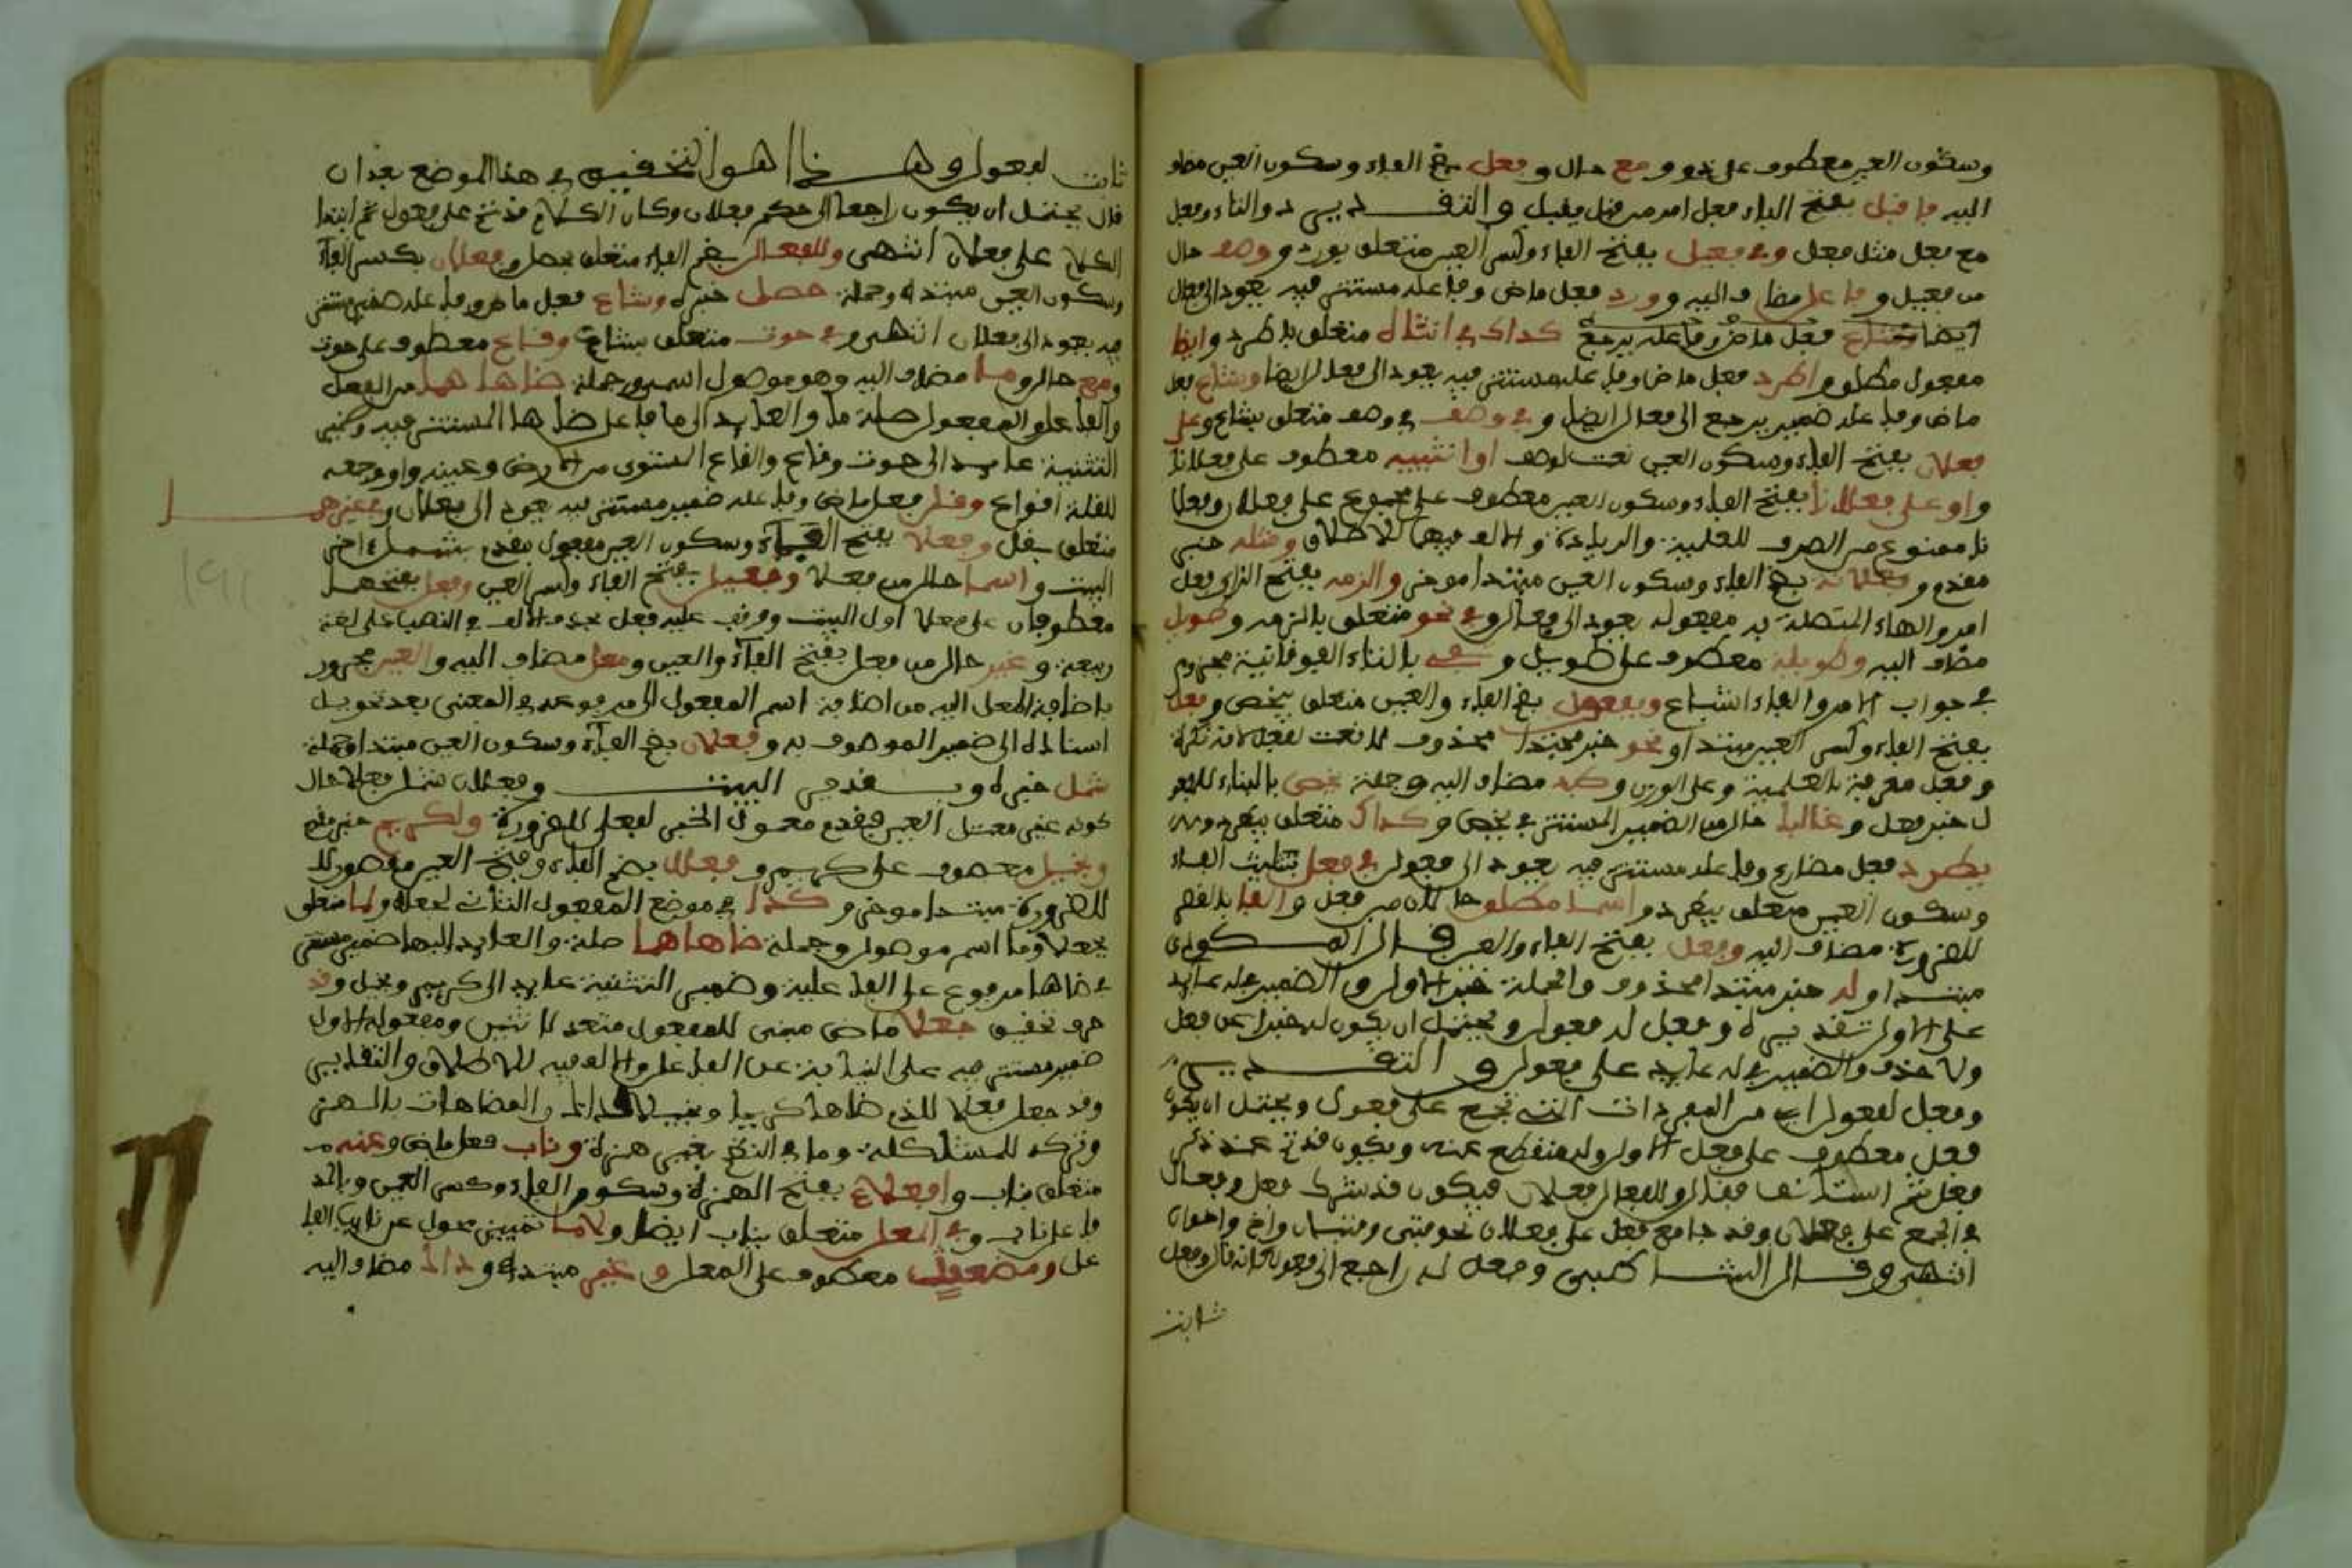 وسكون العين معطوف على ذو ومع حال وفعل بضم الفاء وسكون العين مضاف
اليه فاقبل بفتح الباء فعل امر من قبل يقبل والتقدير ذو والتاء وفعل
مع فعل مثل فعل وفي فعيل بفتح الفاء وكسر العين متعلق بورد ووصف حال
من فعيل وفاعل مضاف اليه وورد فعل ماض وفاعله مستتر فيه يعود الى فعال
ايضا وشاع فعل ماض وفاعله يرجع كذاك في انثاه متعلق باطرد وايضا
مفعول مطلق واطرد فعل ماض وفاعله مستتر فيه يعود الى فعال ايضا وشاع فعل
ماض وفاعله ضمير يرجع الى فعال ايضا وفي وصف في وصف متعلق بشاع وعلى
فعلان بفتح الفاء وسكون العين نعت لوصف او انثييه معطوف على فعلانا
واو على فعلانا بفتح الفاء وسكون العين معطوف على مجموع على فعلان وفعلا
نا ممنوع من الصرف للعلمية والزيادة والالف فيهما للاطلاق ومثله خبر
مقدم وفعلانة بضم الفاء وسكون العين مبتدا موخر والزمه بفتح الزاي فعل
امر والهاء المتصلة به مفعوله يعود الى فعال وفي نحو متعلق بالزمه وطويل
مضاف اليه وطويلة معطوف على طويل وتفي بالتاء الفوقانية مجزوم
في جواب الامر والفاء اشباع وبفعول بفتح الفاء والعين متعلق بيخص وفعل
بفتح الفاء وكسر العين مبتدا ونحو خبر مبتدا محذوف لا نعت لفعل لانه نكرة
وفعل معرفة بالعلمية وعلى الوزن وكبد مضاف اليه وجملة يخص بالبناء للمفعو
ل خبر فعل وغالبا حال من الضمير المستتر في يخص وكذاك متعلق بيطرد
يطرد فعل مضارع وفاعله مستتر فيه يعود الى فعول في فعل بتثليث الفاء
وسكون العين متعلق بيطرد واسما مطلق حالان من فعل والفا بالقصر
للضرورة مضاف اليه وفعل بفتح الفاء والعين قال المكودي
مبتدا وله خبر مبتدا محذوف والجملة خبر الاول والضمير في له عايد
على الاول تقديره وفعل له فعول ويحتمل ان يكون له خبرا عن فعل
ولا حذف والضمير في له عايد على فعول والتقدير
وفعل لفعول اي من المفردات التي تجمع على فعول ويحتمل ان يكون
فعل معطوف على فعل الاول وله منقطع عنه ويكون قد تم عند ذكر
فعل ثم استانف فقال وللفعال فعلان فيكون قد شرك فعل وفعال
في الجمع على فعلان وقد جا مع فعل على فعلان نحو فتى وفتيان واخ واخوان
انتهى وقال الشاطبي وفعل له راجع الى فعول كانه قال وفعل
ثابت
ثابت لفعول وهذا هو التحقيق في هذا الموضع بعد ان
قال يحتمل ان يكون راجعا الى حكم فعلان وكان الكلام قد تم على فعول ثم ابتدا
الكلام على فعلان انتهى وللفعال بضم الفاء متعلق بحصل وفعلان بكسر الفاء
وسكون العين مبتدا وجملة حصل خبره وشاع فعل ماض وفاعله ضمير مستتر
فيه يعود الى فعلان انتهى وفي حوت متعلق بشاع وقاع معطوف على حوت
ومع حال وما مضاف اليه وهو موصول اسمي وجملة ضاهاهما من الفعل
والفاعل والمفعول صلة ما والعايد الى ما فاعل ضاها المستتر فيه وضمير
التثنية عايد الى حوت وقاع والقاع المستوي من الارض وعينه واو وجمعه
للقلة اقواع وقل فعل ماض وفاعله ضمير مستتر فيه يعود الى فعلان وفي غيرهما
متعلق بقل وفعلا بفتح الفاء وسكون العين مفعول مقدم بشمل اخر
البيت واسما حال من فعلا وفعيلا بفتح الفاء وكسر العين وفعل بفتحهما
معطوفان على فعلا اول البيت ووقف عليه فعل بحذف الالف في النصب على لغة
ربيعة وغير حال من فعل بفتح الفاء والعين ومعل مضاف اليه والعين مجرور
باضافة المعل اليه من اضافة اسم المفعول الى مرفوعه في المعنى بعد تحويل
اسناده الى ضمير الموصوف به وفعلان بضم الفاء وسكون العين مبتدا وجملة
شمل خبره وتقدير البيت وفعلان شمل فعلا حال
كونه غير معتل العين فقدم معمول الخبر الفعلي للضرورة ولكريم خبر مقدم
وبخيل معطوف على كريم وفعلا بضم الفاء وفتح العين مقصورا
للضرورة مبتدا موخر وكذا في موضع المفعول الثاني لجعلا ولما متعلق
بجعلا وما اسم موصول وجملة ضاهاهما صلة والعايد اليها ضمير مستتر
في ضاها مرفوع على الفاعلية وضمير التثنية عايد الى كريم وبخيل وقد
حرف تحقيق جعلا ماض مبني للمفعول متعد لاثنين ومفعوله الاول
ضمير مستتر فيه على النيابة عن الفاعل والالف فيه للاطلاق والتقدير
وقد جعل فعلا للذي ضاها كريما وبخيلا كذا والمضاهات بالهمز
وتركه للمشاكلة وما في النظم بغير همزة وناب فعل ماض وعنه
متعلق بناب وافعلاء بفتح الهمزة وسكون الفاء وكسر العين وبالمد
فاعل ناب وفي المعل متعلق بناب ايضا ولاما تمييز محول عن نايب الفا
عل ومضعف معطوف على المعل وغير مبتدا وذاك مضاف اليه